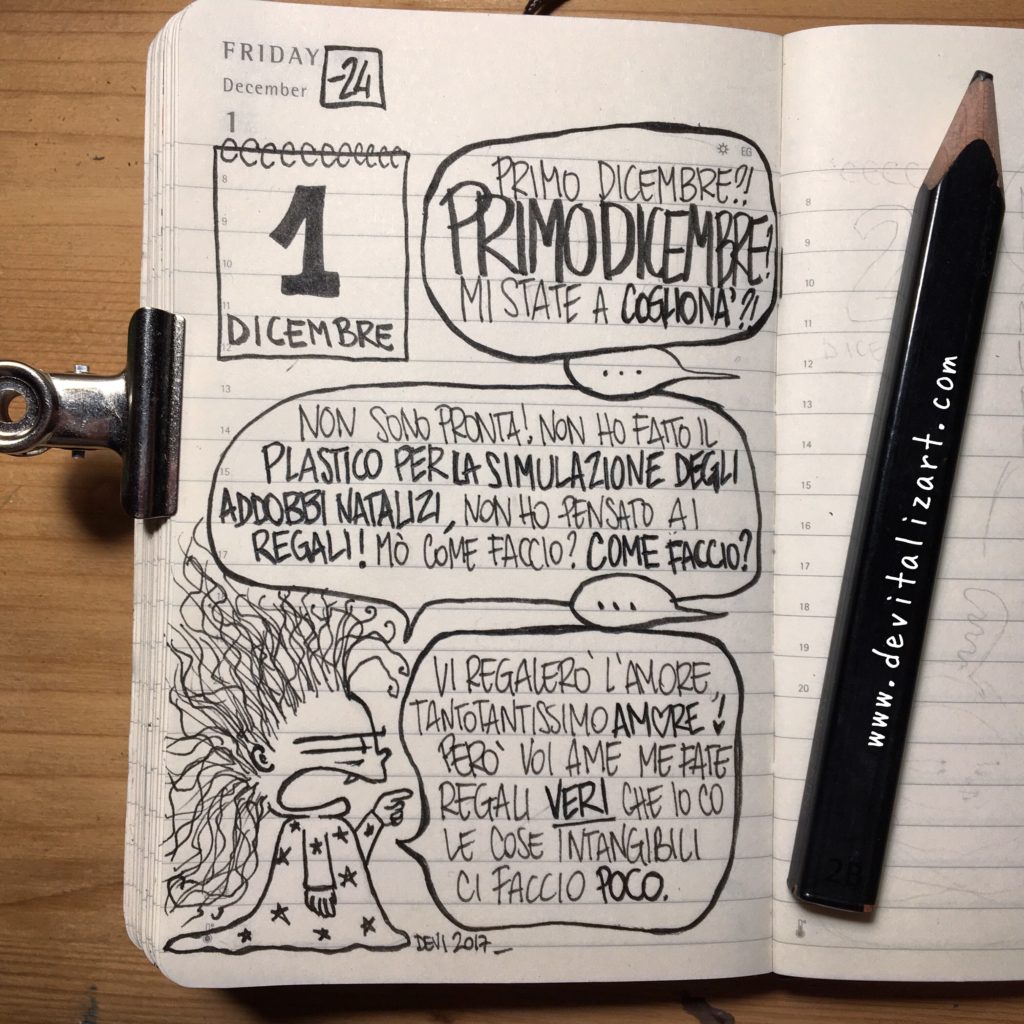 FRIDAY
-24
December
1
1
DICEMBRE
EG
PRIMO DICEMBRE?!
PRIMO DICEMBRE?
MI STATE A COGLIONA'?!
...
NON SONO PRONTA! NON HO FATTO IL
PLASTICO PER LA SIMULAZIONE DEGLI
ADDOBBI NATALIZI, NON HO PENSATO AI
REGALI! MÒ COME FACCIO? COME FACCIO?
...
VI REGALERÒ L'AMORE,
TANTOTANTISSIMO AM♥RE!
PERÒ VOI A ME ME FATE
REGALI VERI CHE IO CO
LE COSE INTANGIBILI
CI FACCIO POCO.
DEVI 2017_
8
9
10
11
13
14
15
16
17
8
9
10
11
12
13
14
15
16
17
18
19
20
www.devitalizart.com
2B